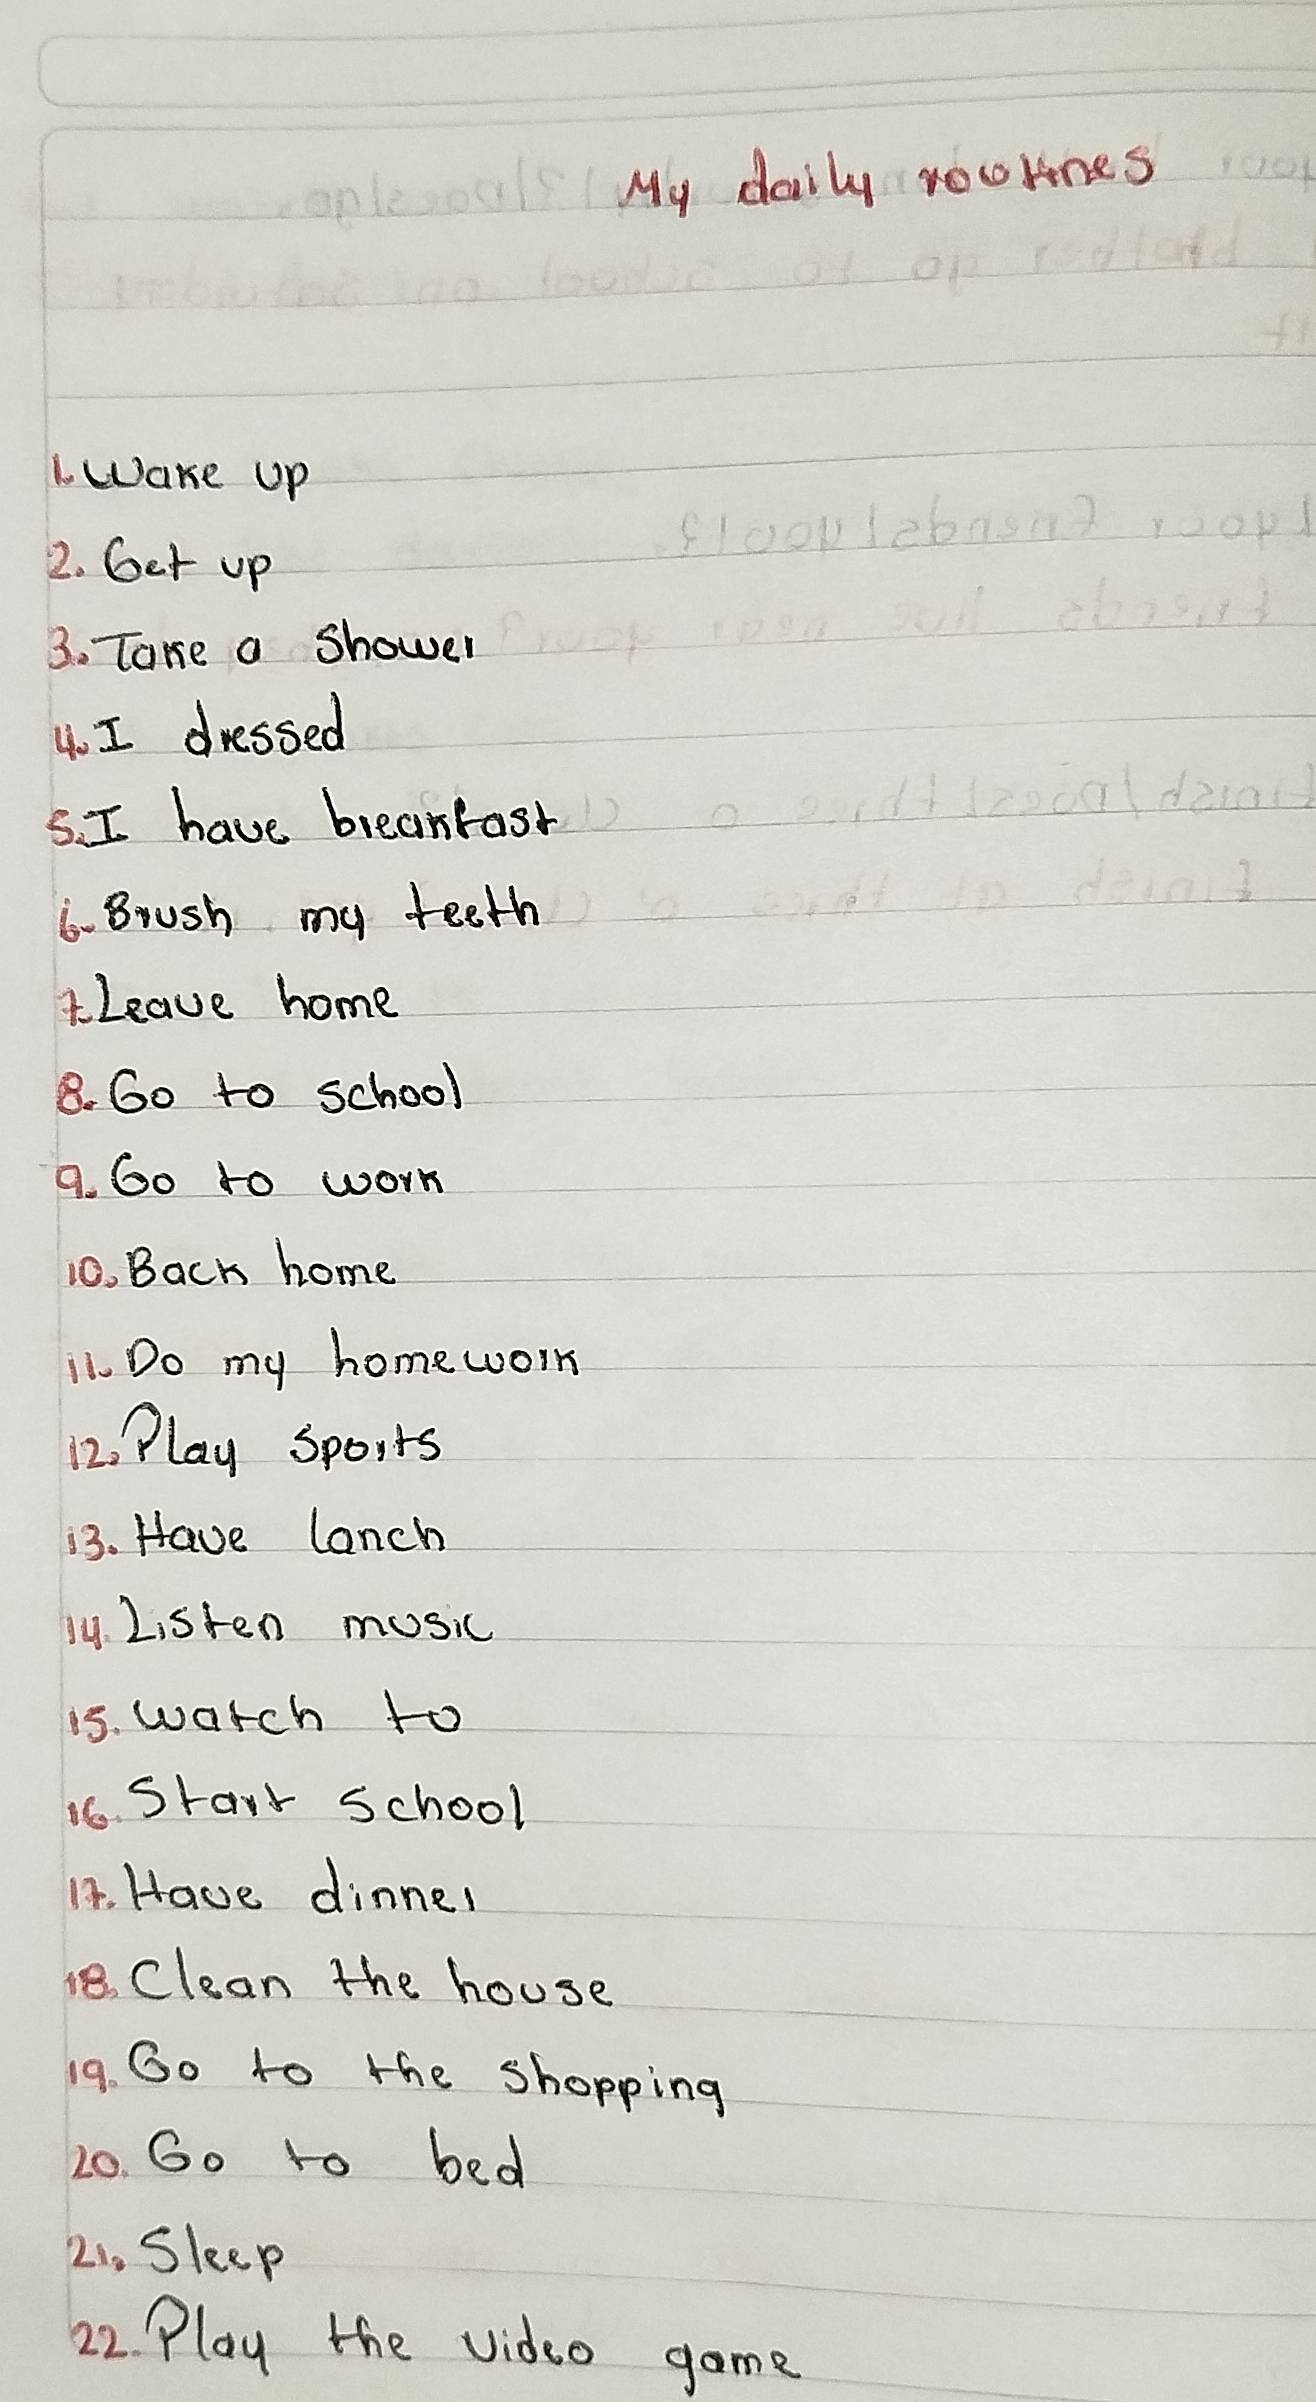 My daily routines
1. Wake up
2. Get up
3. Take a shower
4. I dressed
5. I have breakfast
6. Brush my teeth
7. Leave home
8. Go to school
9. Go to work
10. Back home
11. Do my homework
12. Play sports
13. Have lanch
14. Listen music
15. Watch to
16. Start school
17. Have dinner
18. Clean the house
19. Go to the shopping
20. Go to bed
21. Sleep
22. Play the video game